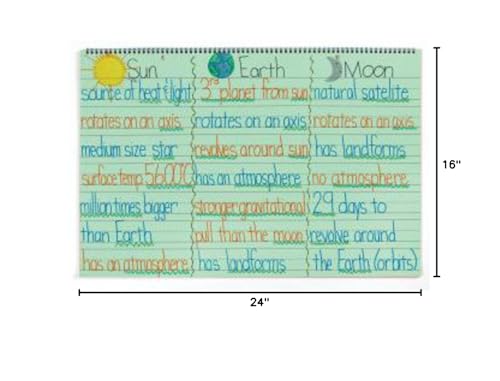 Sun Earth Moon
source of heat & light 3rd planet from sun natural satellite
rotates on an axis rotates on an axis rotates on an axis
medium size star revolves around sun has landforms
surface temp 5600°C has an atmosphere no atmosphere
million times bigger stronger gravitational 29 days to
than Earth pull than the moon revolve around
has an atmosphere has landforms the Earth (orbits)
16"
24"